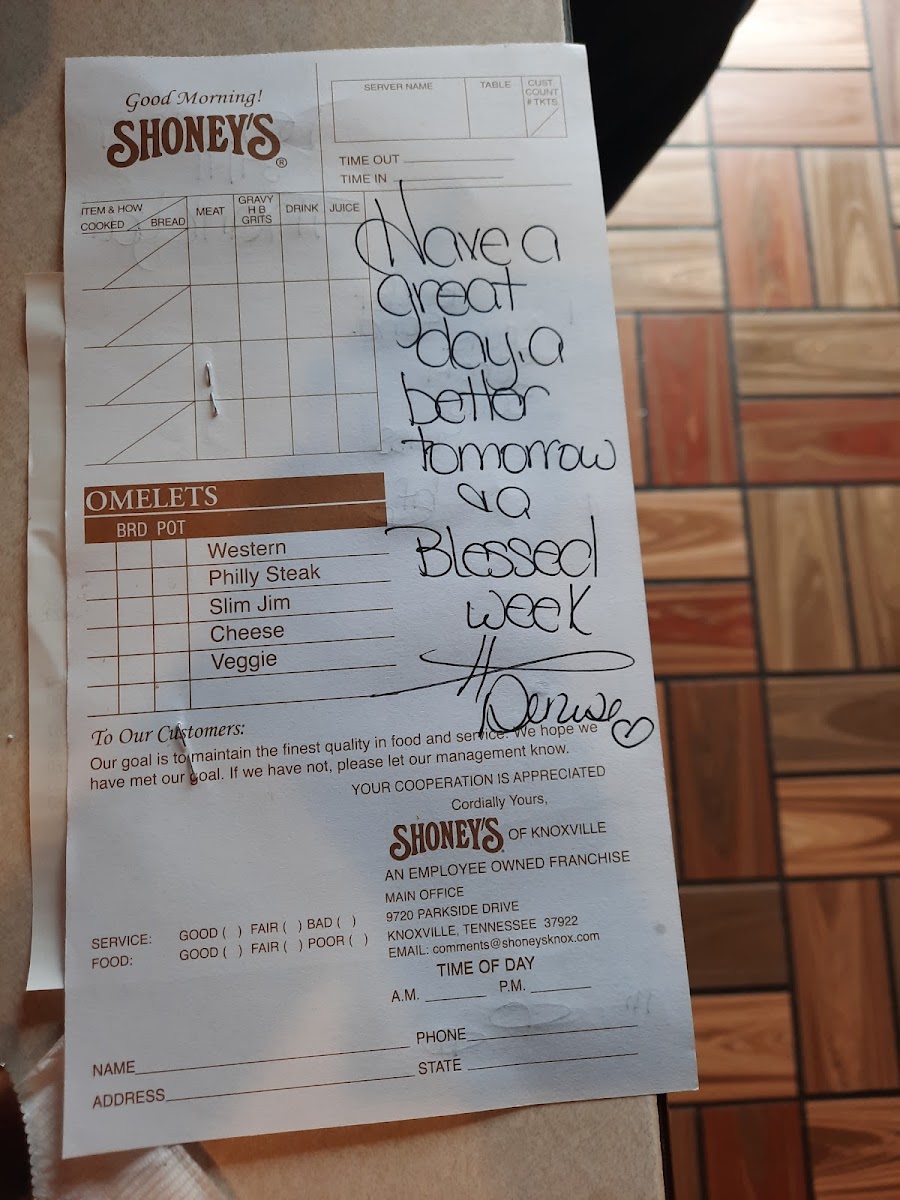 Good Morning!
SHONEY'S®
SERVER NAME
TABLE
CUST.
COUNT
# TKTS
TIME OUT
TIME IN
ITEM & HOW
COOKED
BREAD
MEAT
GRAVY
H B
GRITS
DRINK
JUICE
Have a
great
day, a
better
tomorrow
& a
Blessed
week
Denise
OMELETS
BRD POT
Western
Philly Steak
Slim Jim
Cheese
Veggie
To Our Customers:
Our goal is to maintain the finest quality in food and service. We hope we
have met our goal. If we have not, please let our management know.
YOUR COOPERATION IS APPRECIATED
Cordially Yours,
SHONEY'S OF KNOXVILLE
AN EMPLOYEE OWNED FRANCHISE
MAIN OFFICE
9720 PARKSIDE DRIVE
KNOXVILLE, TENNESSEE 37922
EMAIL: comments@shoneysknox.com
SERVICE: GOOD ( ) FAIR ( ) BAD ( )
FOOD: GOOD ( ) FAIR ( ) POOR ( )
TIME OF DAY
A.M. P.M.
NAME PHONE
ADDRESS STATE